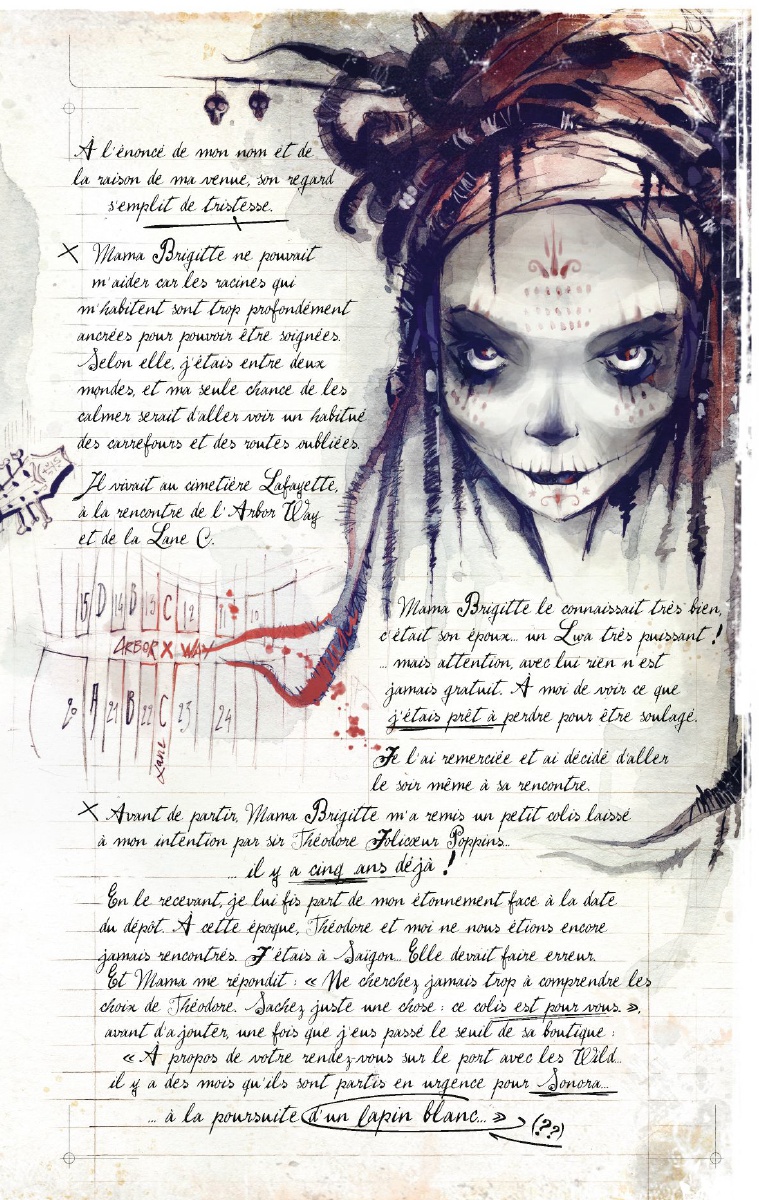 À l'énoncé de mon nom et de
la raison de ma venue, son regard
s'emplit de tristesse.
X Mama Brigitte ne pouvait
m'aider car les racines qui
m'habitent sont trop profondément
ancrées pour pouvoir être soignées.
Selon elle, j'étais entre deux
mondes, et ma seule chance de les
calmer serait d'aller voir un habitué
des carrefours et des routes oubliées.
Il vivait au cimetière Lafayette,
à la rencontre de l'Arbor Way
et de la Lane C.
15 D 14 B 13 C 12 11 10
ARBOR X WAY
20 A 21 B 22 C 23 24
Lane
Mama Brigitte le connaissait très bien,
c'était son époux... un Lwa très puissant !
... mais attention, avec lui rien n'est
jamais gratuit. À moi de voir ce que
j'étais prêt à perdre pour être soulagé.
Je l'ai remerciée et ai décidé d'aller
le soir même à sa rencontre.
X Avant de partir, Mama Brigitte m'a remis un petit colis laissé
à mon intention par sir Théodore Jolicœur Poppins...
... il y a cinq ans déjà !
En le recevant, je lui fis part de mon étonnement face à la date
du dépôt. À cette époque, Théodore et moi ne nous étions encore
jamais rencontrés. J'étais à Saïgon... Elle devait faire erreur.
Et Mama me répondit : « Ne cherchez jamais trop à comprendre les
choix de Théodore. Sachez juste une chose : ce colis est pour vous. »,
avant d'ajouter, une fois que j'eus passé le seuil de sa boutique :
« À propos de votre rendez-vous sur le port avec les Wild...
il y a des mois qu'ils sont partis en urgence pour Sonora...
... à la poursuite d'un lapin blanc... » (??)